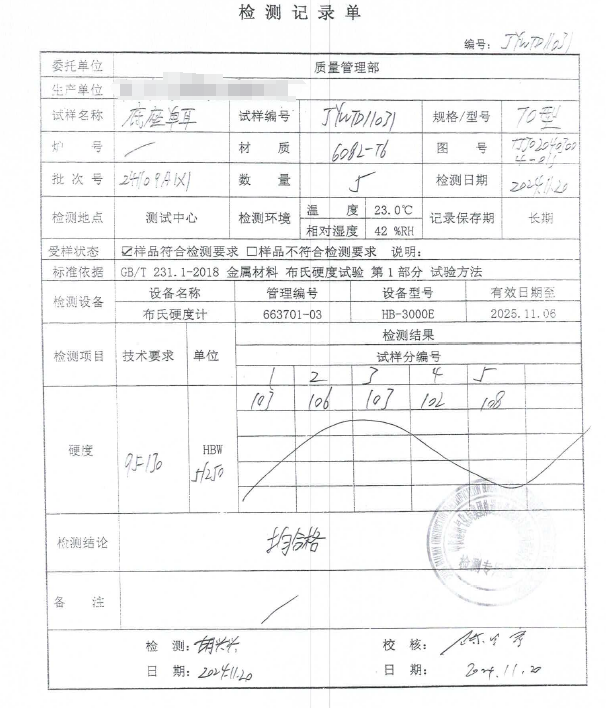 检测记录单
编号: JYWTD11031
委托单位 质量管理部
生产单位
试样名称 底座单耳 试样编号 JYWTD11031 规格/型号 70型
炉 号 / 材 质 6082-T6 图 号
批次号 数 量 5 检测日期 2024.11.20
检测地点 测试中心 检测环境 温 度 23.0℃ 记录保存期 长期
相对湿度 42 %RH
受样状态 ☑样品符合检测要求 □样品不符合检测要求 说明:
标准依据 GB/T 231.1-2018 金属材料 布氏硬度试验 第1部分 试验方法
检测设备 设备名称 管理编号 设备型号 有效日期至
布氏硬度计 663701-03 HB-3000E 2025.11.06
检测项目 技术要求 单位 检测结果
试样分编号
1 2 3 4 5
103 106 103 102 108
硬度 95-130 HBW 5/250
检测结论 均合格
检测专
备 注 /
检 测: 校 核:
日 期: 2024.11.20 日 期: 2024.11.20